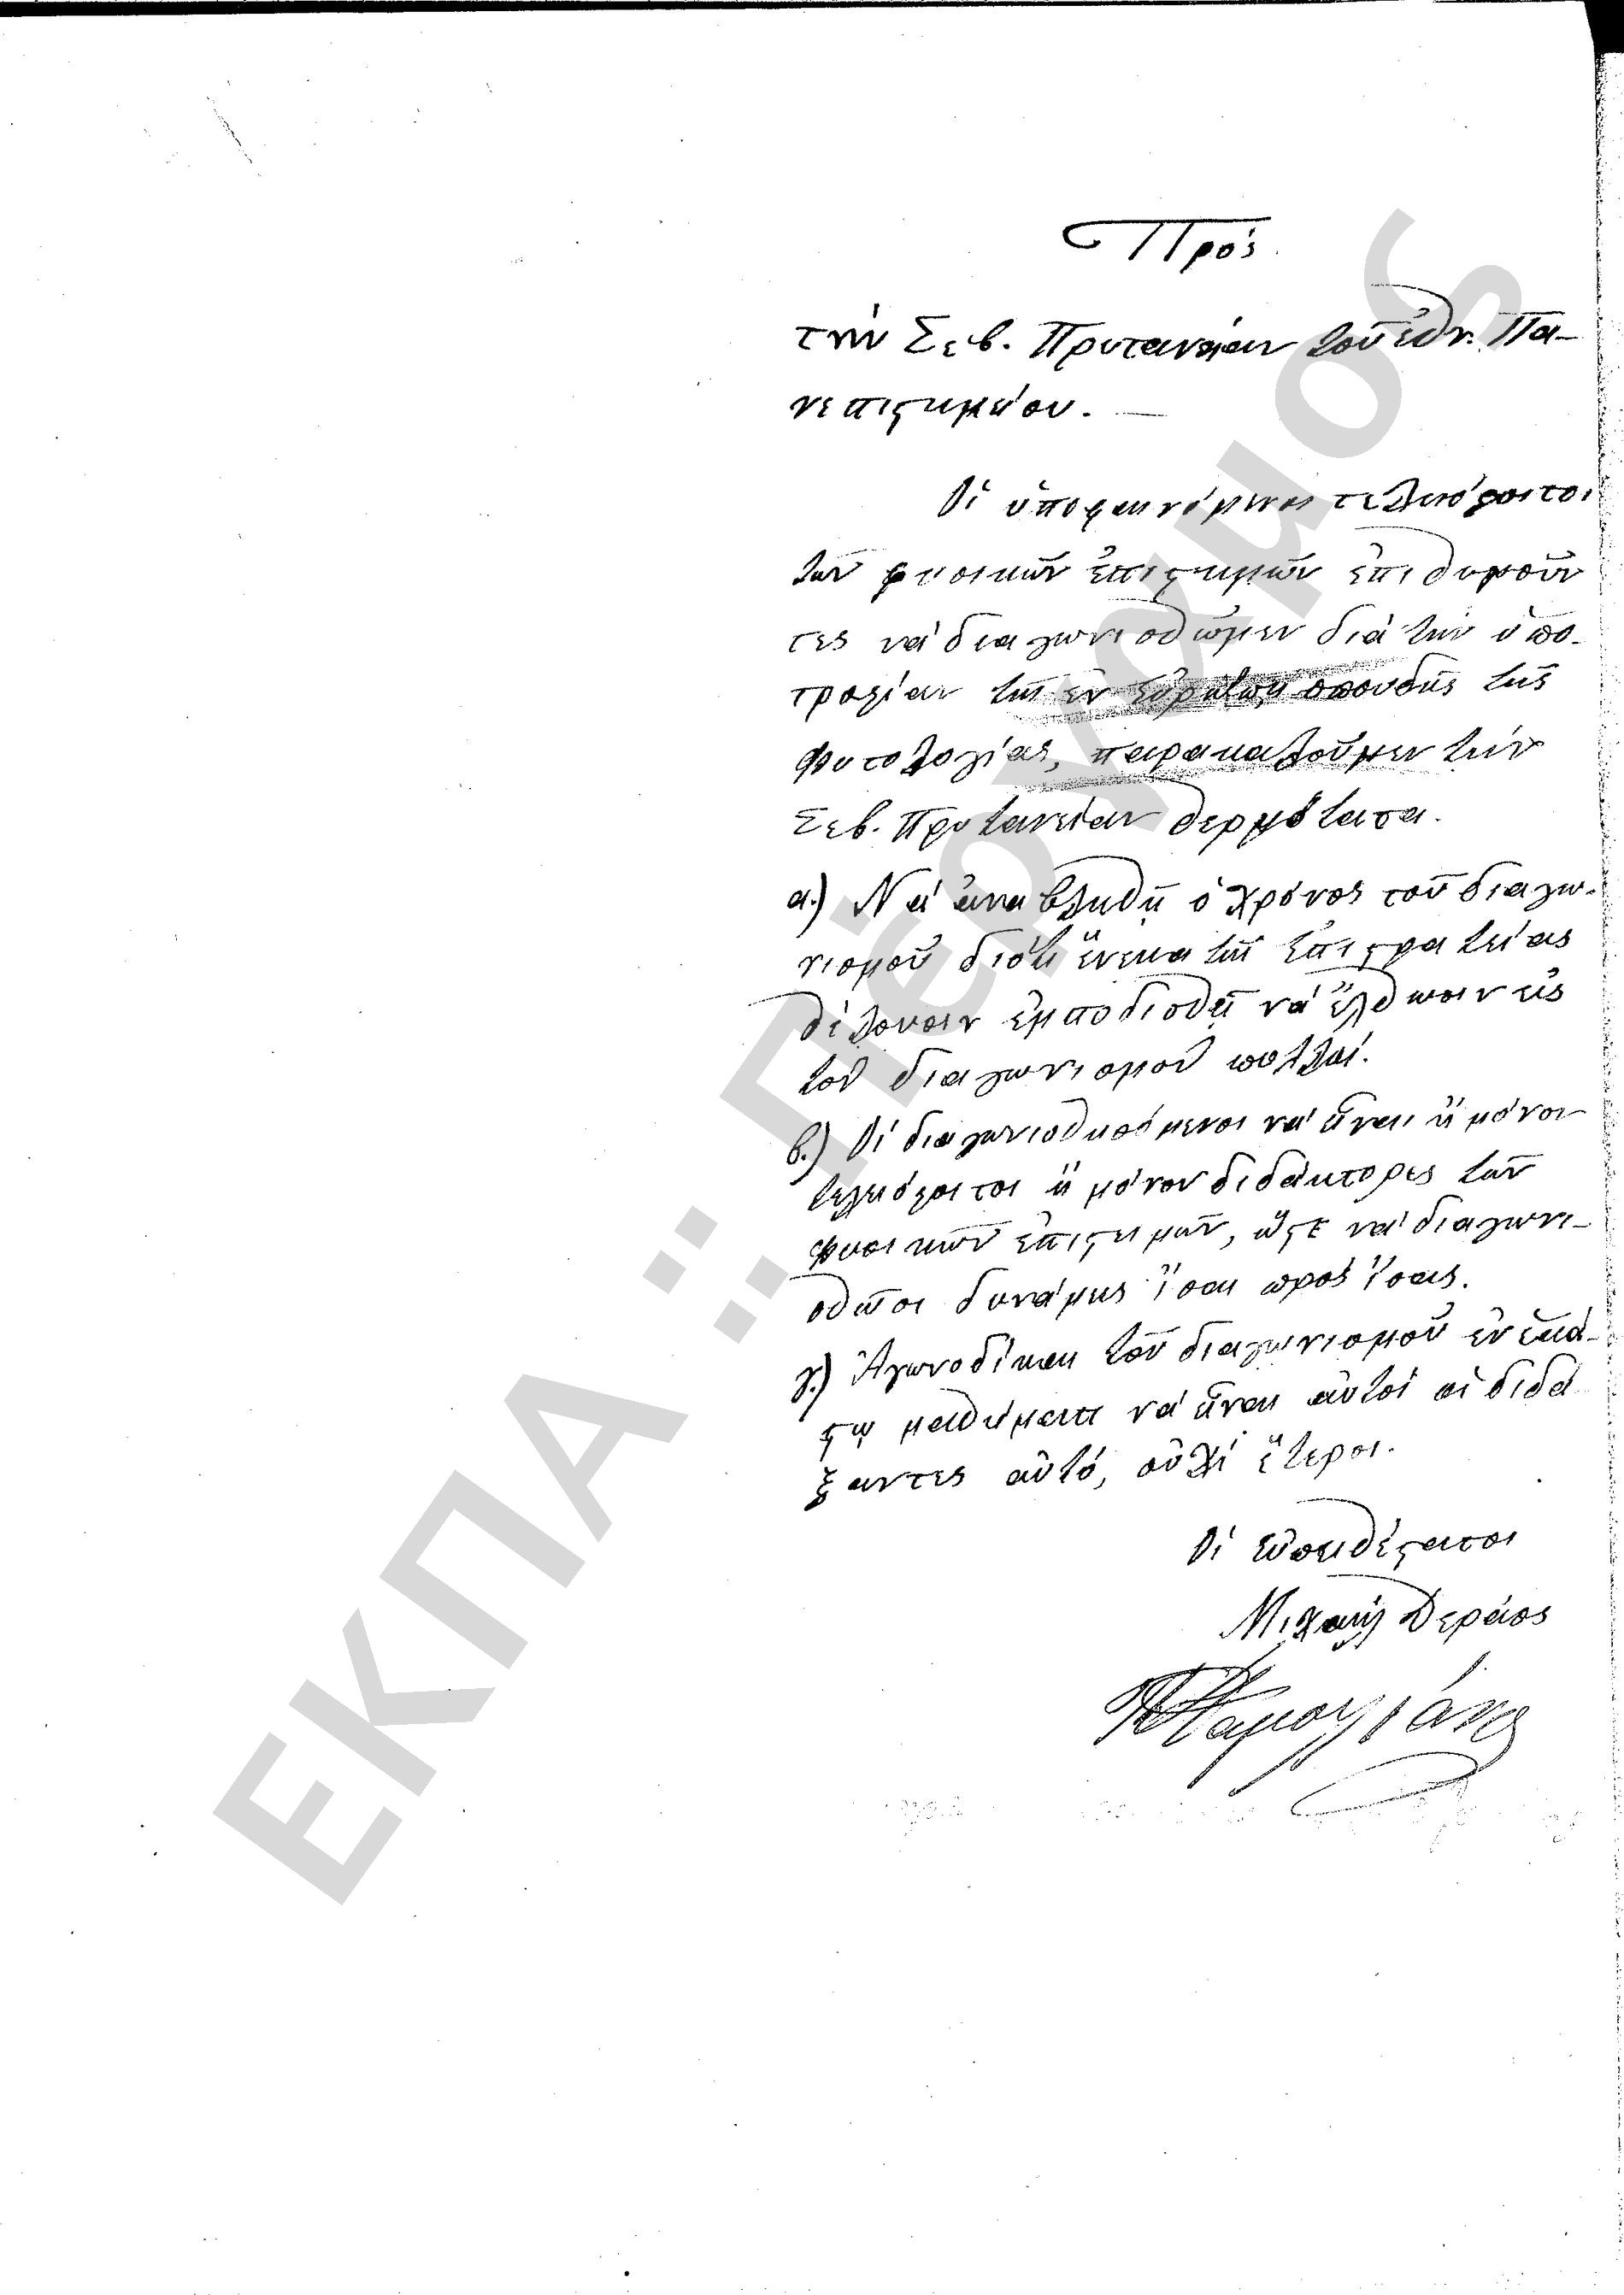 Πρός
τὴν Σεβ. Πρυτανείαν τοῦ ἐθν. Πα-
νεπιστημείου. —
Οἱ ὑποφαινόμενοι τελειόφοιτοι
τῶν φυσικῶν ἐπιστημῶν ἐπιθυμοῦν
τες νὰ διαγωνισθῶμεν διὰ τὴν ὑπο-
τροφίαν τῆς ἐν Εὐρώπῃ σπουδῆς τῆς
Φυτολογίας, παρακαλοῦμεν τὴν
Σεβ. Πρυτανείαν θερμότατα.
α.) Νὰ ἀναβληθῇ ὁ χρόνος τοῦ διαγω-
νισμοῦ διότι ἕνεκα τῆς ἐπιστρατείας
θέλουσιν ἐμποδισθῇ νὰ ἔλθωσιν εἰς
τὸν διαγωνισμὸν πολλοί.
β.) Οἱ διαγωνισθησόμενοι νὰ ἦναι ἢ μόνοι
τελειόφοιτοι ἢ μόνον διδάκτορες τῶν
φυσικῶν ἐπιστημῶν, ὥστε νὰ διαγωνι-
σθῶσι δυνάμεις ἴσαι πρὸς ἴσας.
γ.) Ἀγωνοδίκαι τοῦ διαγωνισμοῦ ἐν ἑκά-
στῳ μαθήματι νὰ ἦναι αὐτοὶ οἱ διδά
ξαντες αὐτό, οὐχὶ ἕτεροι.
Οἱ εὐπειθέστατοι
Μιχαὴλ Δεράος
ΕΚΠΑ : Περγαμος